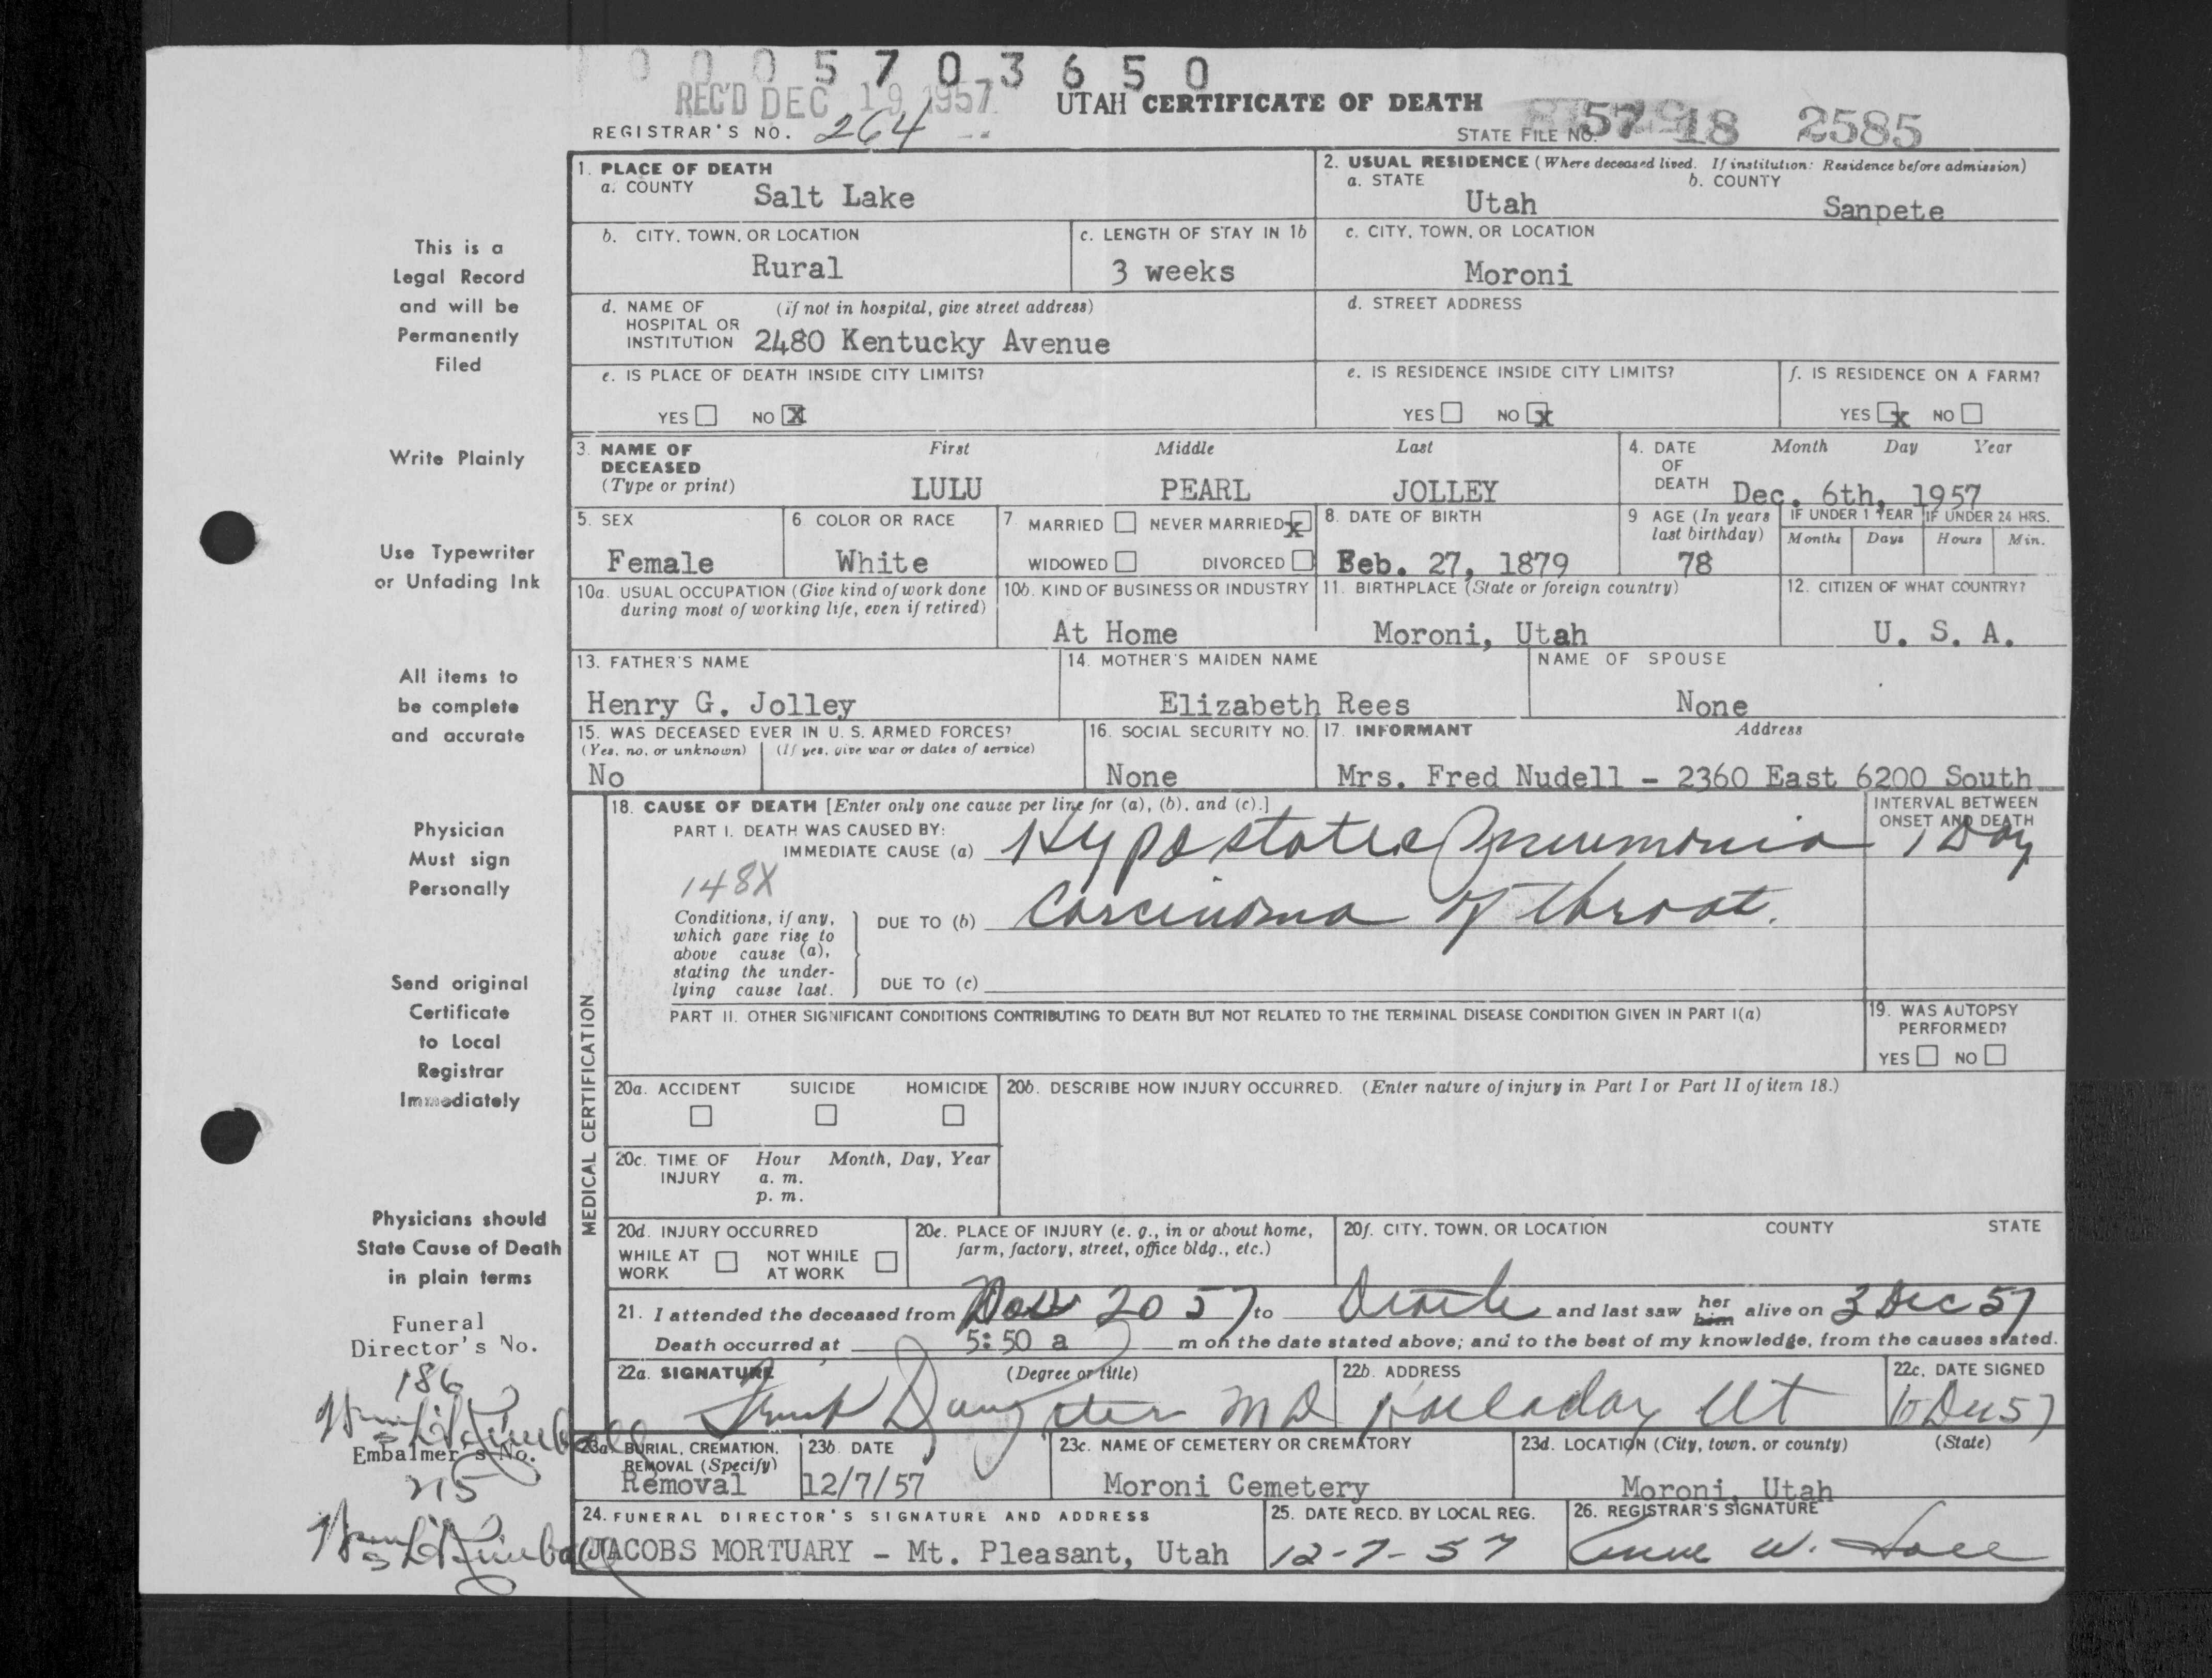 0 0 0 5 7 0 3 6 5 0
REC'D DEC 19 1957
UTAH CERTIFICATE OF DEATH
REGISTRAR'S NO. 264
STATE FILE NO. 57 18 2585
This is a
Legal Record
and will be
Permanently
Filed
Write Plainly
Use Typewriter
or Unfading Ink
All items to
be complete
and accurate
Physician
Must sign
Personally
Send original
Certificate
to Local
Registrar
Immediately
Physicians should
State Cause of Death
in plain terms
Funeral
Director's No.
186
Embalmer's No.
215
1. PLACE OF DEATH
a. COUNTY Salt Lake
2. USUAL RESIDENCE (Where deceased lived. If institution: Residence before admission)
a. STATE Utah b. COUNTY Sanpete
b. CITY, TOWN, OR LOCATION Rural
c. LENGTH OF STAY IN 1b 3 weeks
c. CITY, TOWN, OR LOCATION Moroni
d. NAME OF (if not in hospital, give street address)
HOSPITAL OR
INSTITUTION 2480 Kentucky Avenue
d. STREET ADDRESS
e. IS PLACE OF DEATH INSIDE CITY LIMITS?
YES NO X
e. IS RESIDENCE INSIDE CITY LIMITS?
YES NO X
f. IS RESIDENCE ON A FARM?
YES X NO
3. NAME OF First Middle Last
DECEASED
(Type or print) LULU PEARL JOLLEY
4. DATE Month Day Year
OF
DEATH Dec. 6th, 1957
5. SEX
Female
6 COLOR OR RACE
White
7 MARRIED NEVER MARRIED X
WIDOWED DIVORCED
8. DATE OF BIRTH
Feb. 27, 1879
9 AGE (In years
last birthday)
78
IF UNDER 1 YEAR IF UNDER 24 HRS.
Months Days Hours Min.
10a. USUAL OCCUPATION (Give kind of work done
during most of working life, even if retired)
10b. KIND OF BUSINESS OR INDUSTRY
At Home
11. BIRTHPLACE (State or foreign country)
Moroni, Utah
12. CITIZEN OF WHAT COUNTRY?
U. S. A.
13. FATHER'S NAME
Henry G. Jolley
14. MOTHER'S MAIDEN NAME
Elizabeth Rees
NAME OF SPOUSE
None
15. WAS DECEASED EVER IN U. S. ARMED FORCES?
(Yes, no, or unknown) (If yes, give war or dates of service)
No
16. SOCIAL SECURITY NO.
None
17. INFORMANT Address
Mrs. Fred Nudell - 2360 East 6200 South
MEDICAL CERTIFICATION
18. CAUSE OF DEATH [Enter only one cause per line for (a), (b), and (c).]
INTERVAL BETWEEN
ONSET AND DEATH
PART I. DEATH WAS CAUSED BY:
IMMEDIATE CAUSE (a) Hypostatic Pneumonia 1 Day
148X
Conditions, if any,
which gave rise to
above cause (a),
stating the under-
lying cause last.
DUE TO (b) Carcinoma of throat.
DUE TO (c)
PART II. OTHER SIGNIFICANT CONDITIONS CONTRIBUTING TO DEATH BUT NOT RELATED TO THE TERMINAL DISEASE CONDITION GIVEN IN PART I(a)
19. WAS AUTOPSY
PERFORMED?
YES NO
20a. ACCIDENT SUICIDE HOMICIDE
20b. DESCRIBE HOW INJURY OCCURRED. (Enter nature of injury in Part I or Part II of item 18.)
20c. TIME OF Hour Month, Day, Year
INJURY a. m.
p. m.
20d. INJURY OCCURRED
WHILE AT NOT WHILE
WORK AT WORK
20e. PLACE OF INJURY (e. g., in or about home,
farm, factory, street, office bldg., etc.)
20f. CITY, TOWN, OR LOCATION COUNTY STATE
21. I attended the deceased from Nov 20 57 to Death and last saw her him alive on 3 Dec 57
Death occurred at 5:50 a m on the date stated above; and to the best of my knowledge, from the causes stated.
22a. SIGNATURE (Degree or title)
MD
22b. ADDRESS
Holladay Ut
22c. DATE SIGNED
Dec 57
23a. BURIAL, CREMATION,
REMOVAL (Specify)
Removal
23b. DATE
12/7/57
23c. NAME OF CEMETERY OR CREMATORY
Moroni Cemetery
23d. LOCATION (City, town, or county) (State)
Moroni, Utah
24. FUNERAL DIRECTOR'S SIGNATURE AND ADDRESS
JACOBS MORTUARY - Mt. Pleasant, Utah
25. DATE RECD. BY LOCAL REG.
12-7-57
26. REGISTRAR'S SIGNATURE